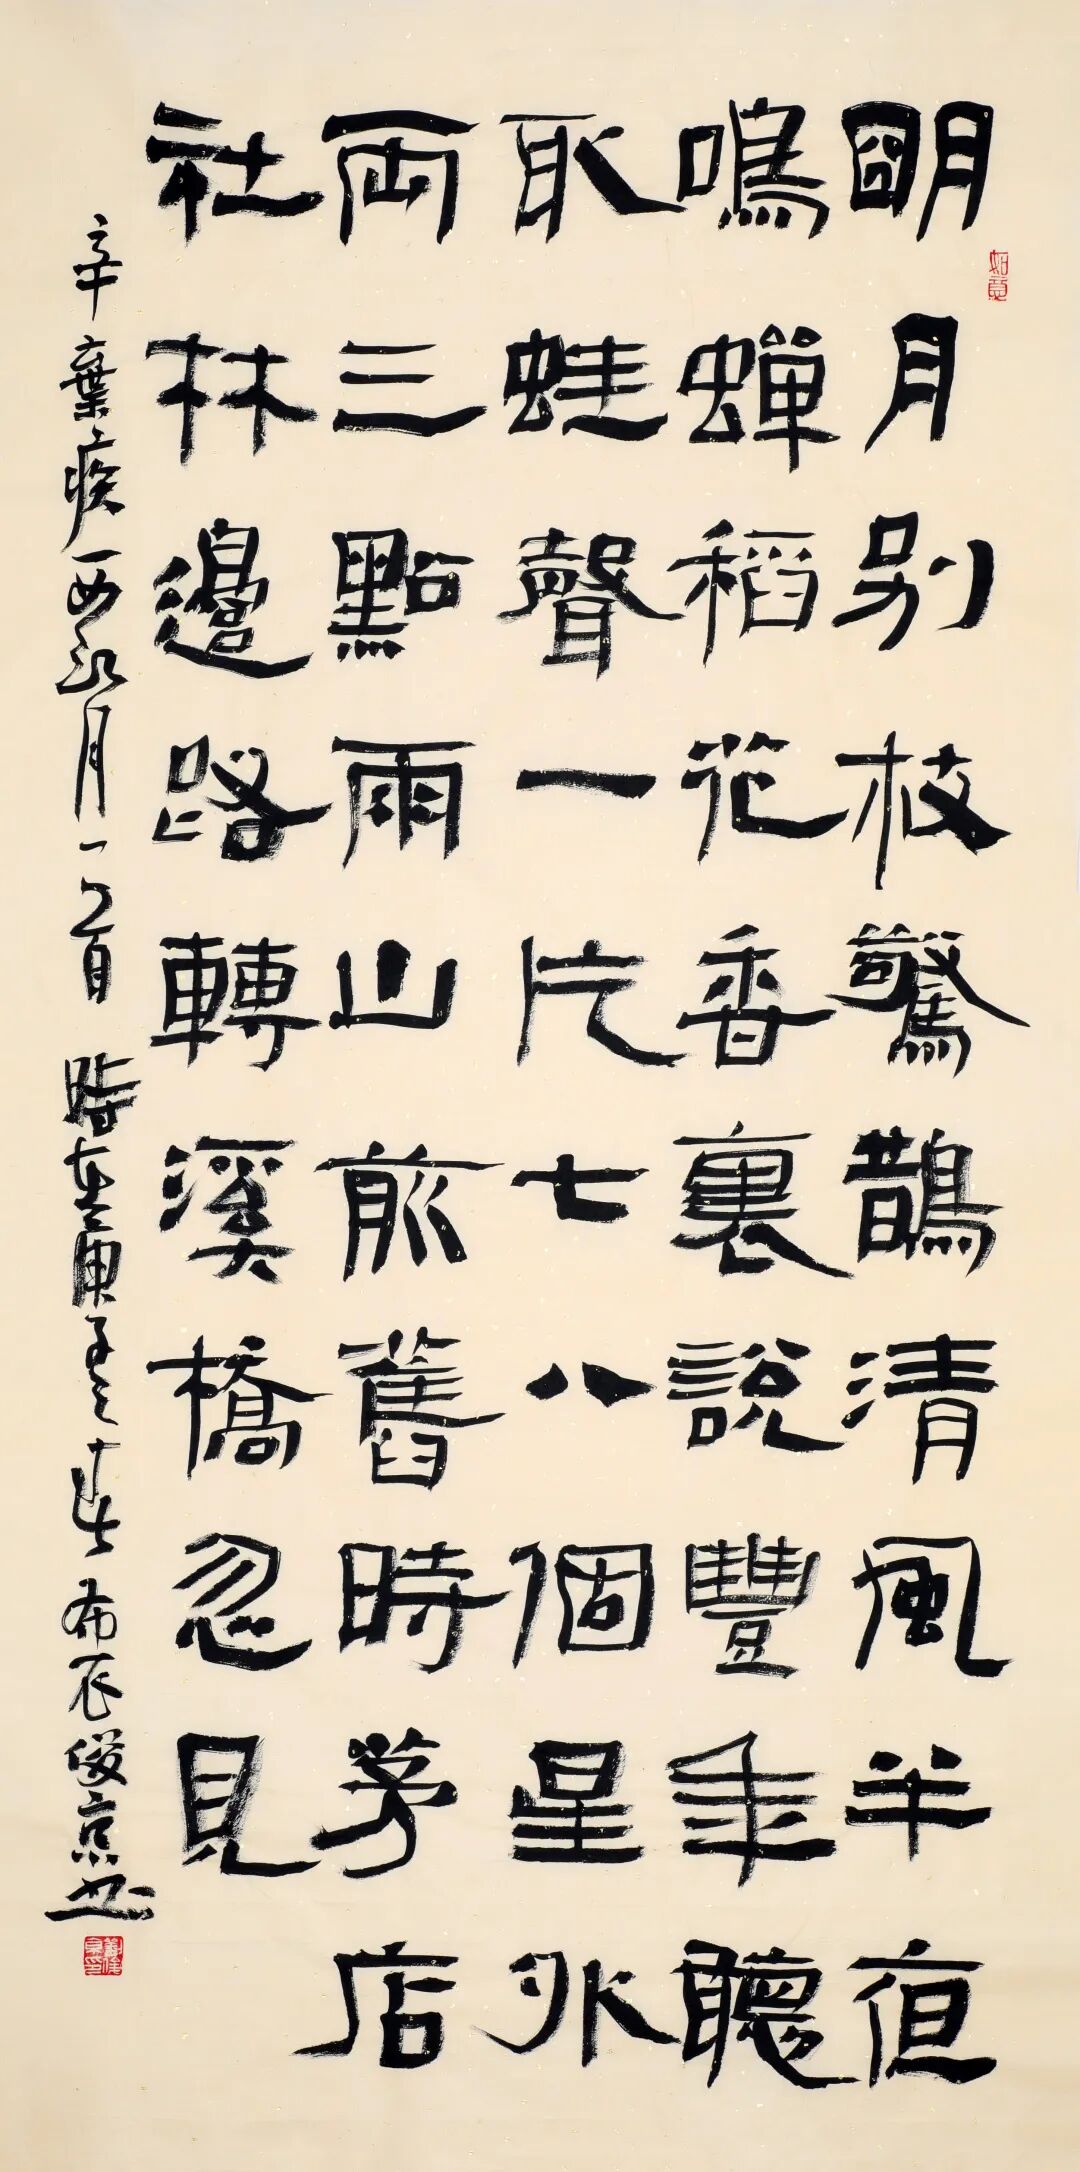 明月别枝驚鵲清風半夜
鳴蟬稻花香裏說豐年聽
取蛙聲一片七八個星外
兩三點雨山前舊時茅店
社林邊路轉溪橋忽見
辛棄疾西江月一首 時在庚子之春 布衣俊京書
如意